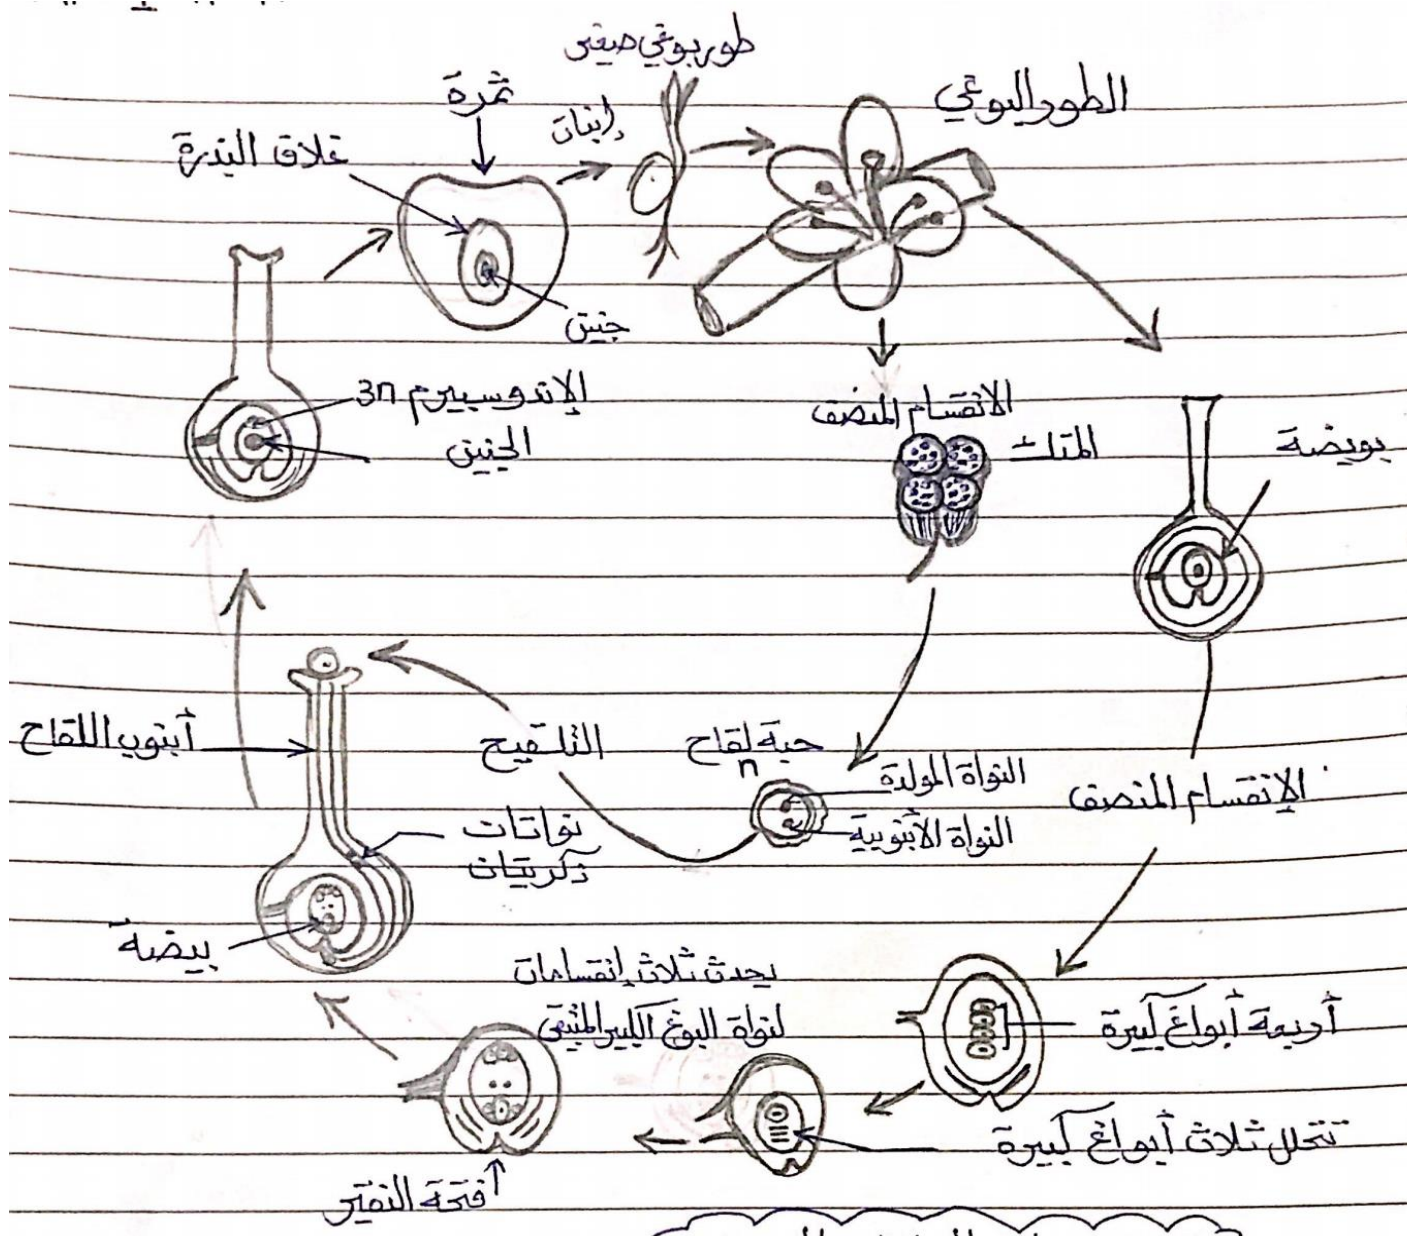 طور بوغي صيفي
الطور البوغي
ثمرة
إنبات
غلاف البذرة
جنين
الإندوسبيرم 3n
الجنين
الانقسام المنصف
المتك
بويضة
أبنوب اللقاح
التلقيح
حبة لقاح
n
النواة المولدة
النواة الأبنوبية
الإنقسام المنصف
نواتات
ذكريتان
بيضة
يحدث ثلاث إنقسامات
لنواة البوغ الكبير المتبقي
أربعة أبواغ كبيرة
تتحلل ثلاث أبواغ كبيرة
فتحة النقير